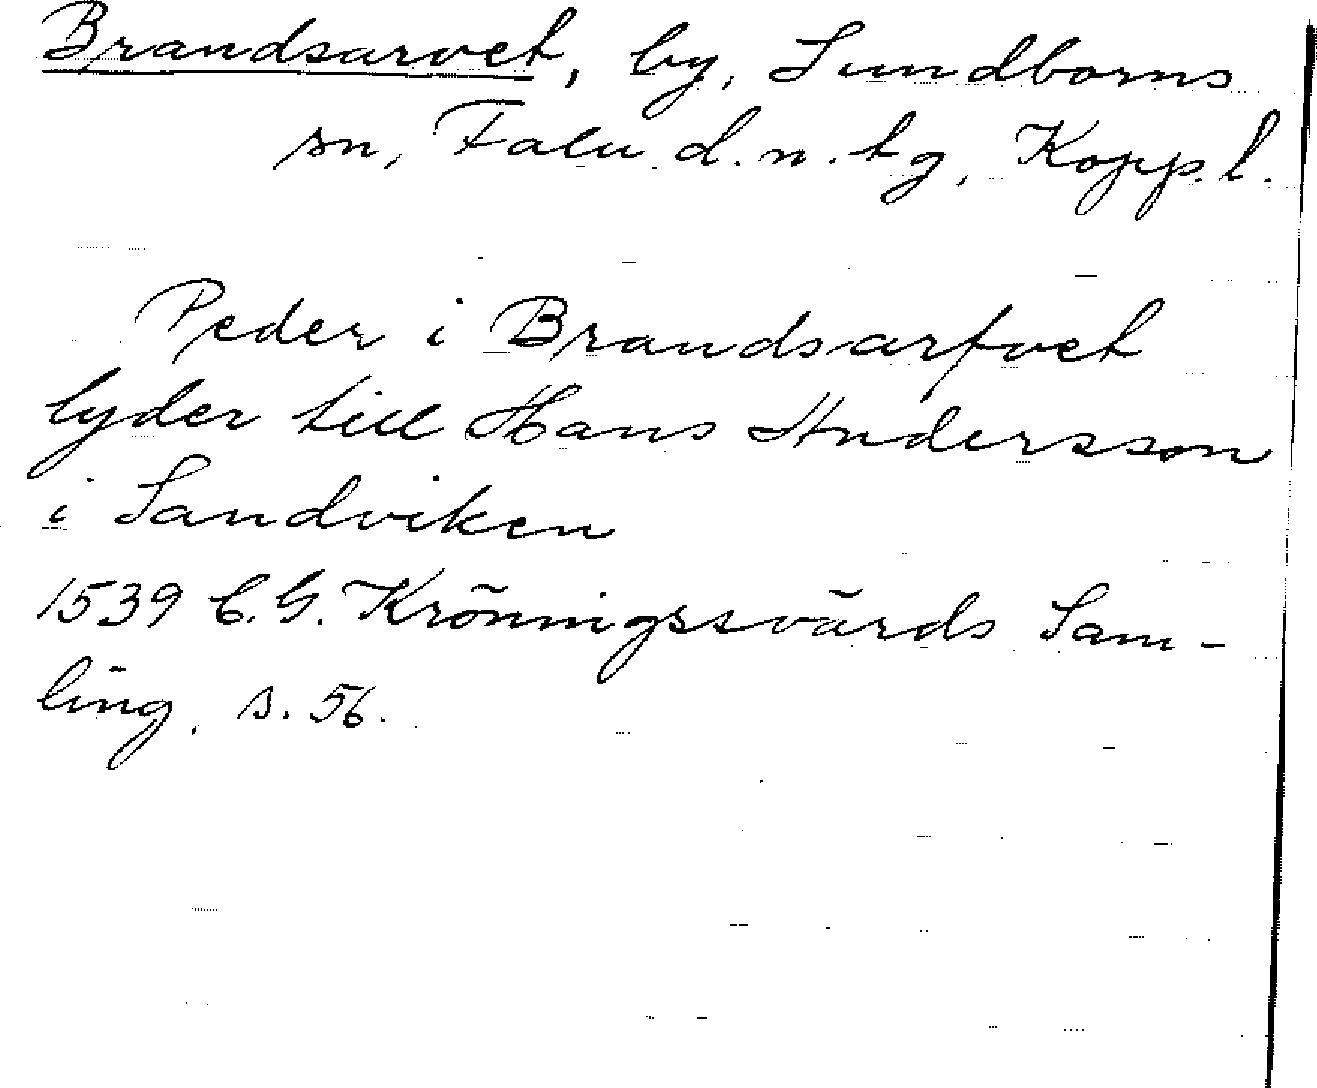 Brandsarvet, by, Sundborns
sn, Falu d.n. tg, Kopp. l.
Peder i Brandsarfvet
lyder till Hans Andersson
i Sandviken
1539 C.G. Kröningssvärds Sam-
ling, s. 56.